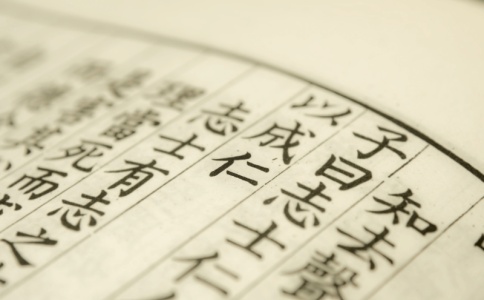 知去聲
子曰志士仁
以成仁
志士有志之
理當死而求
是害其